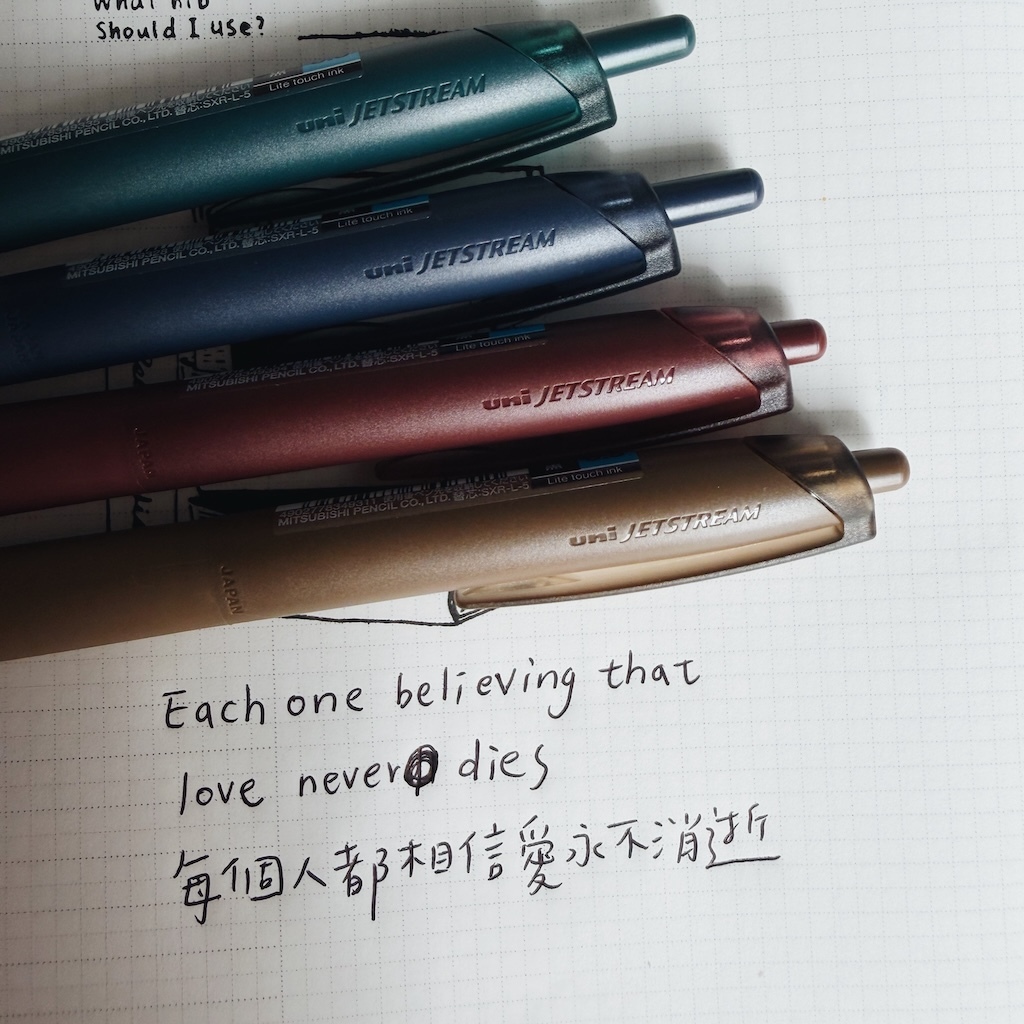 What nib
Should I use?
Lite touch ink
MITSUBISHI PENCIL CO., LTD. 替芯:SXR-L-5
uni JETSTREAM
Lite touch ink
MITSUBISHI PENCIL CO., LTD. 替芯:SXR-L-5
uni JETSTREAM
Lite touch ink
MITSUBISHI PENCIL CO., LTD. 替芯:SXR-L-5
uni JETSTREAM
JAPAN
Lite touch ink
MITSUBISHI PENCIL CO., LTD. 替芯:SXR-L-5
uni JETSTREAM
JAPAN
Each one believing that
love never dies
每個人都相信愛永不消逝